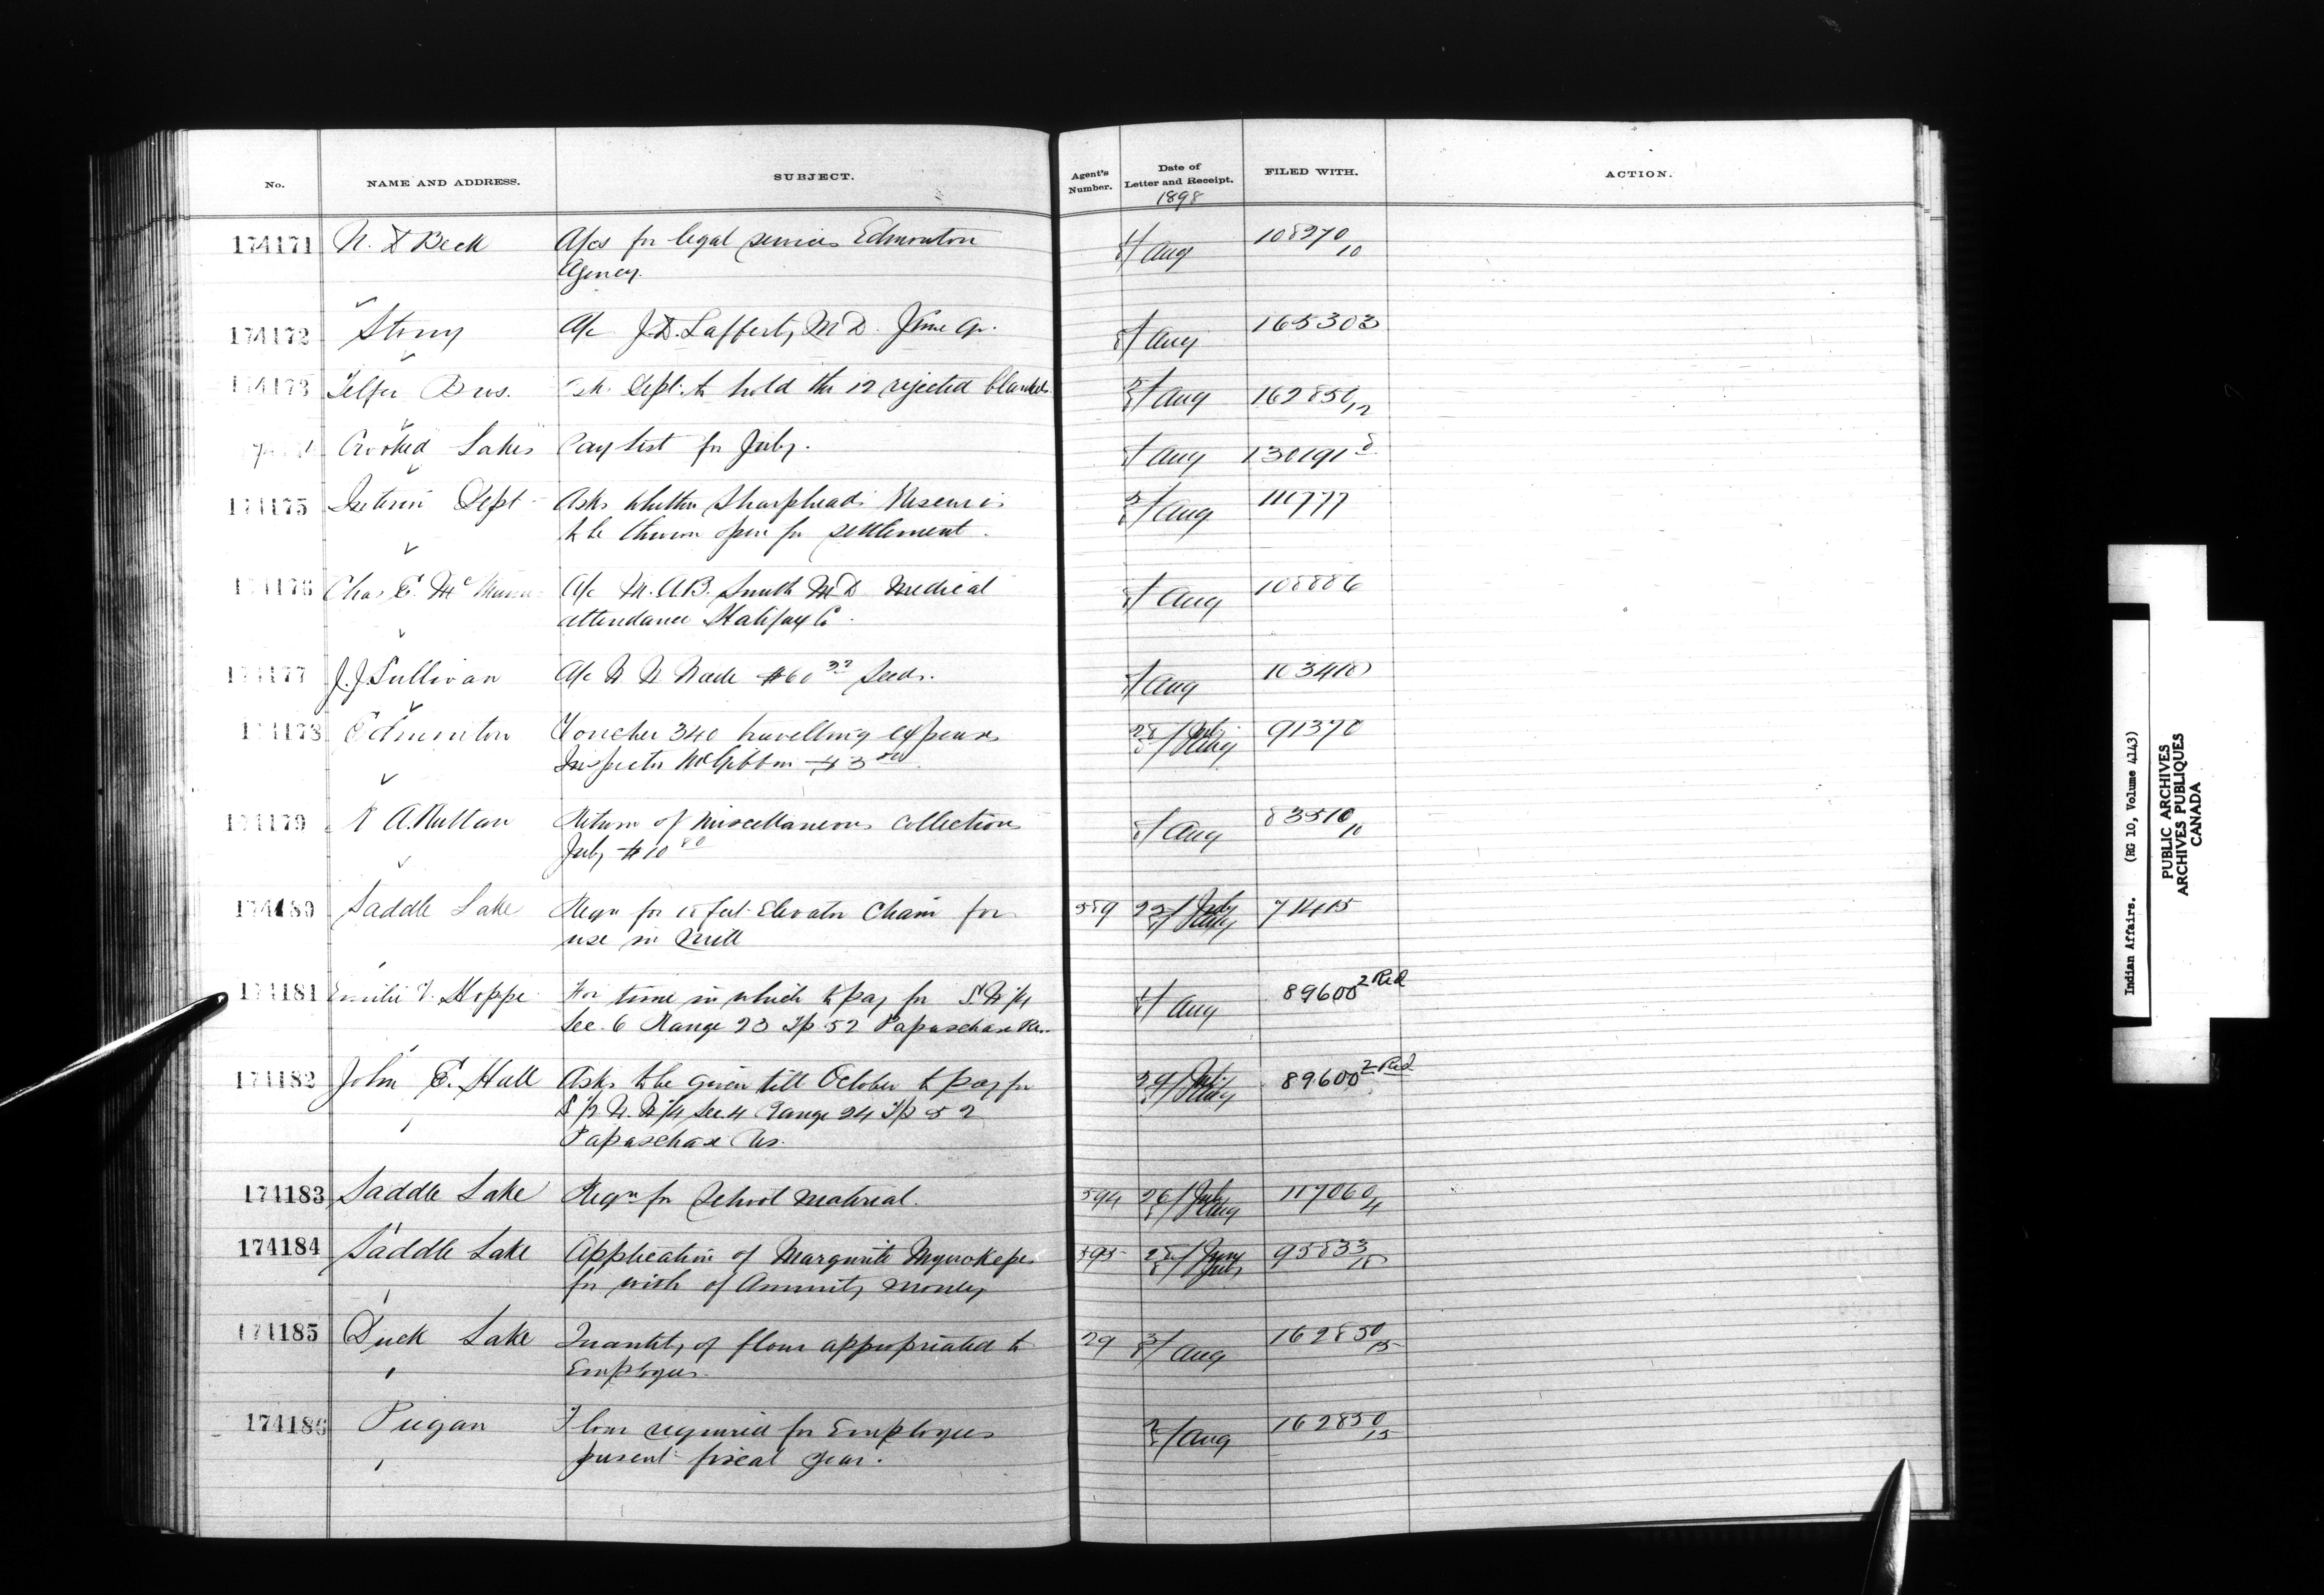 No. NAME AND ADDRESS. SUBJECT. Agent's Number. Date of Letter and Receipt. FILED WITH. ACTION.
1898
174171 N. D Beck A/cs for legal services Edmonton Aug 108270/10
Agency.
174172 Stony A/c J.D. Lafferty M D. June qr. Aug 165303
174173 Telfer Bros. Ask Dept. to hold the 12 rejected blankets Aug 162850/12
Crooked Lakes Pay list for July. Aug 130191
174175 Interior Dept Asks whether Sharpheads Reserve is Aug 111777
to be thrown open for settlement.
174176 Chas E. A/c M. A.B. Smith M D Medical Aug 108886
attendance Halifax Co.
174177 J. J. Sullivan A/c Seeds. Aug
174178 Edmonton Voucher 340 travelling expenses 28/July Aug 91370
Inspector McGibbon
174179 R A. Ruttan Return of Miscellaneous Collections Aug 83510/10
July $10 80
174180 Saddle Lake Reqn for 15 feet Elevator Chain for 589 July Aug 71415
use in Mill
174181 Emilie Hoppe For time in which to pay for S. W 1/4 Aug 89600 2 Red
Sec. 6 Range 23 Tp 52 Papaschase Res.
174182 John E. Hall Asks to be given till October to pay for 29/July Aug 89600 2 Red
S 1/2 N. W 1/4 Sec. 4 Range 24 Tp 52
Papaschase Res.
174183 Saddle Lake Reqn for School material. 594 26/July Aug 117060/4
174184 Saddle Lake Application of Margurite for with of Annuity Money 595 28/ 95833
174185 Duck Lake Quantity of flour appropriated to 29 3/ Aug 162850/15
Employees.
174186 Piegan Flour required for Employees Aug 162850/15
present fiscal year.
Indian Affairs. (RG 10, Volume 4143)
PUBLIC ARCHIVES
ARCHIVES PUBLIQUES
CANADA